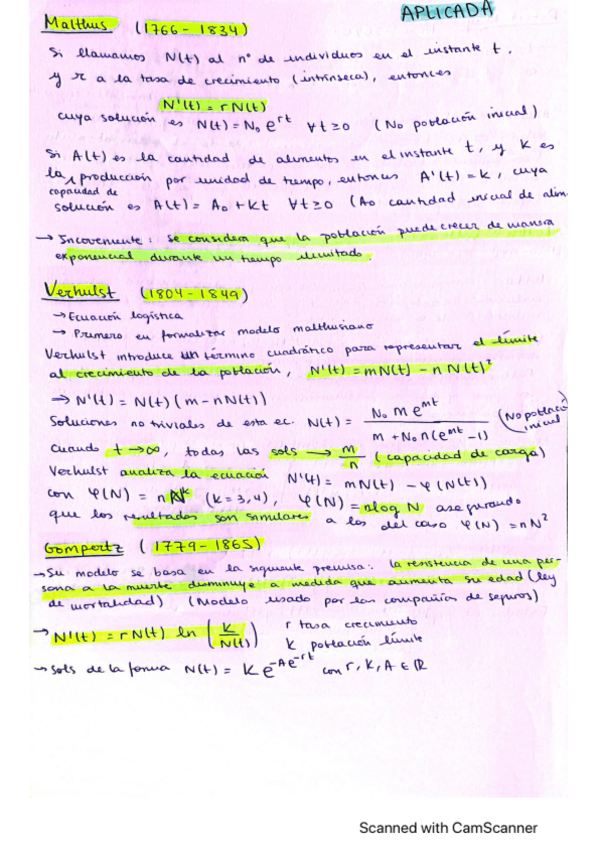 APLICADA
Malthus (1766-1834)
Si llamamos N(t) al nº de individuos en el instante t.
y r a la tasa de crecimiento (intrínseca), entonces
N'(t) = r N(t)
cuya solución es N(t) = N₀ e^{rt} ∀t≥0 (N₀ población inicial)
Si A(t) es la cantidad de alimentos en el instante t, y K es
la producción por unidad de tiempo, entonces A'(t) = K, cuya
capacidad de
solución es A(t) = A₀ + Kt ∀t≥0 (A₀ cantidad inicial de alim
→ Incoveniente: se considera que la población puede crecer de manera
exponencial durante un tiempo ilimitado.
Verhulst (1804-1849)
→ Ecuación logística
→ Primero en formalizar modelo malthusiano
Verhulst introduce un término cuadrático para representar el límite
al crecimiento de la población, N'(t) = mN(t) - n N(t)²
→ N'(t) = N(t) (m - nN(t))
Soluciones no triviales de esta ec. N(t) = N₀ m e^{mt} / (m + N₀ n (e^{mt} - 1)) (N₀ población inicial)
Cuando t→∞, todas las sols → m/n (capacidad de carga)
Verhulst analiza la ecuación N'(t) = mN(t) - φ(N(t))
con φ(N) = n N^k (k=3,4), φ(N) = n log N asegurando
que los resultados son similares a los del caso φ(N) = nN²
Gompertz (1779-1865)
→ Su modelo se basa en la siguiente premisa: la resistencia de una per-
sona a la muerte disminuye a medida que aumenta su edad (ley
de mortalidad) (Modelo usado por las compañías de seguros)
→ N'(t) = r N(t) ln (K/N(t)) r tasa crecimiento
K población límite
→ Sols de la forma N(t) = K e^{-A e^{-rt}} con r, K, A ∈ ℝ
Scanned with CamScanner